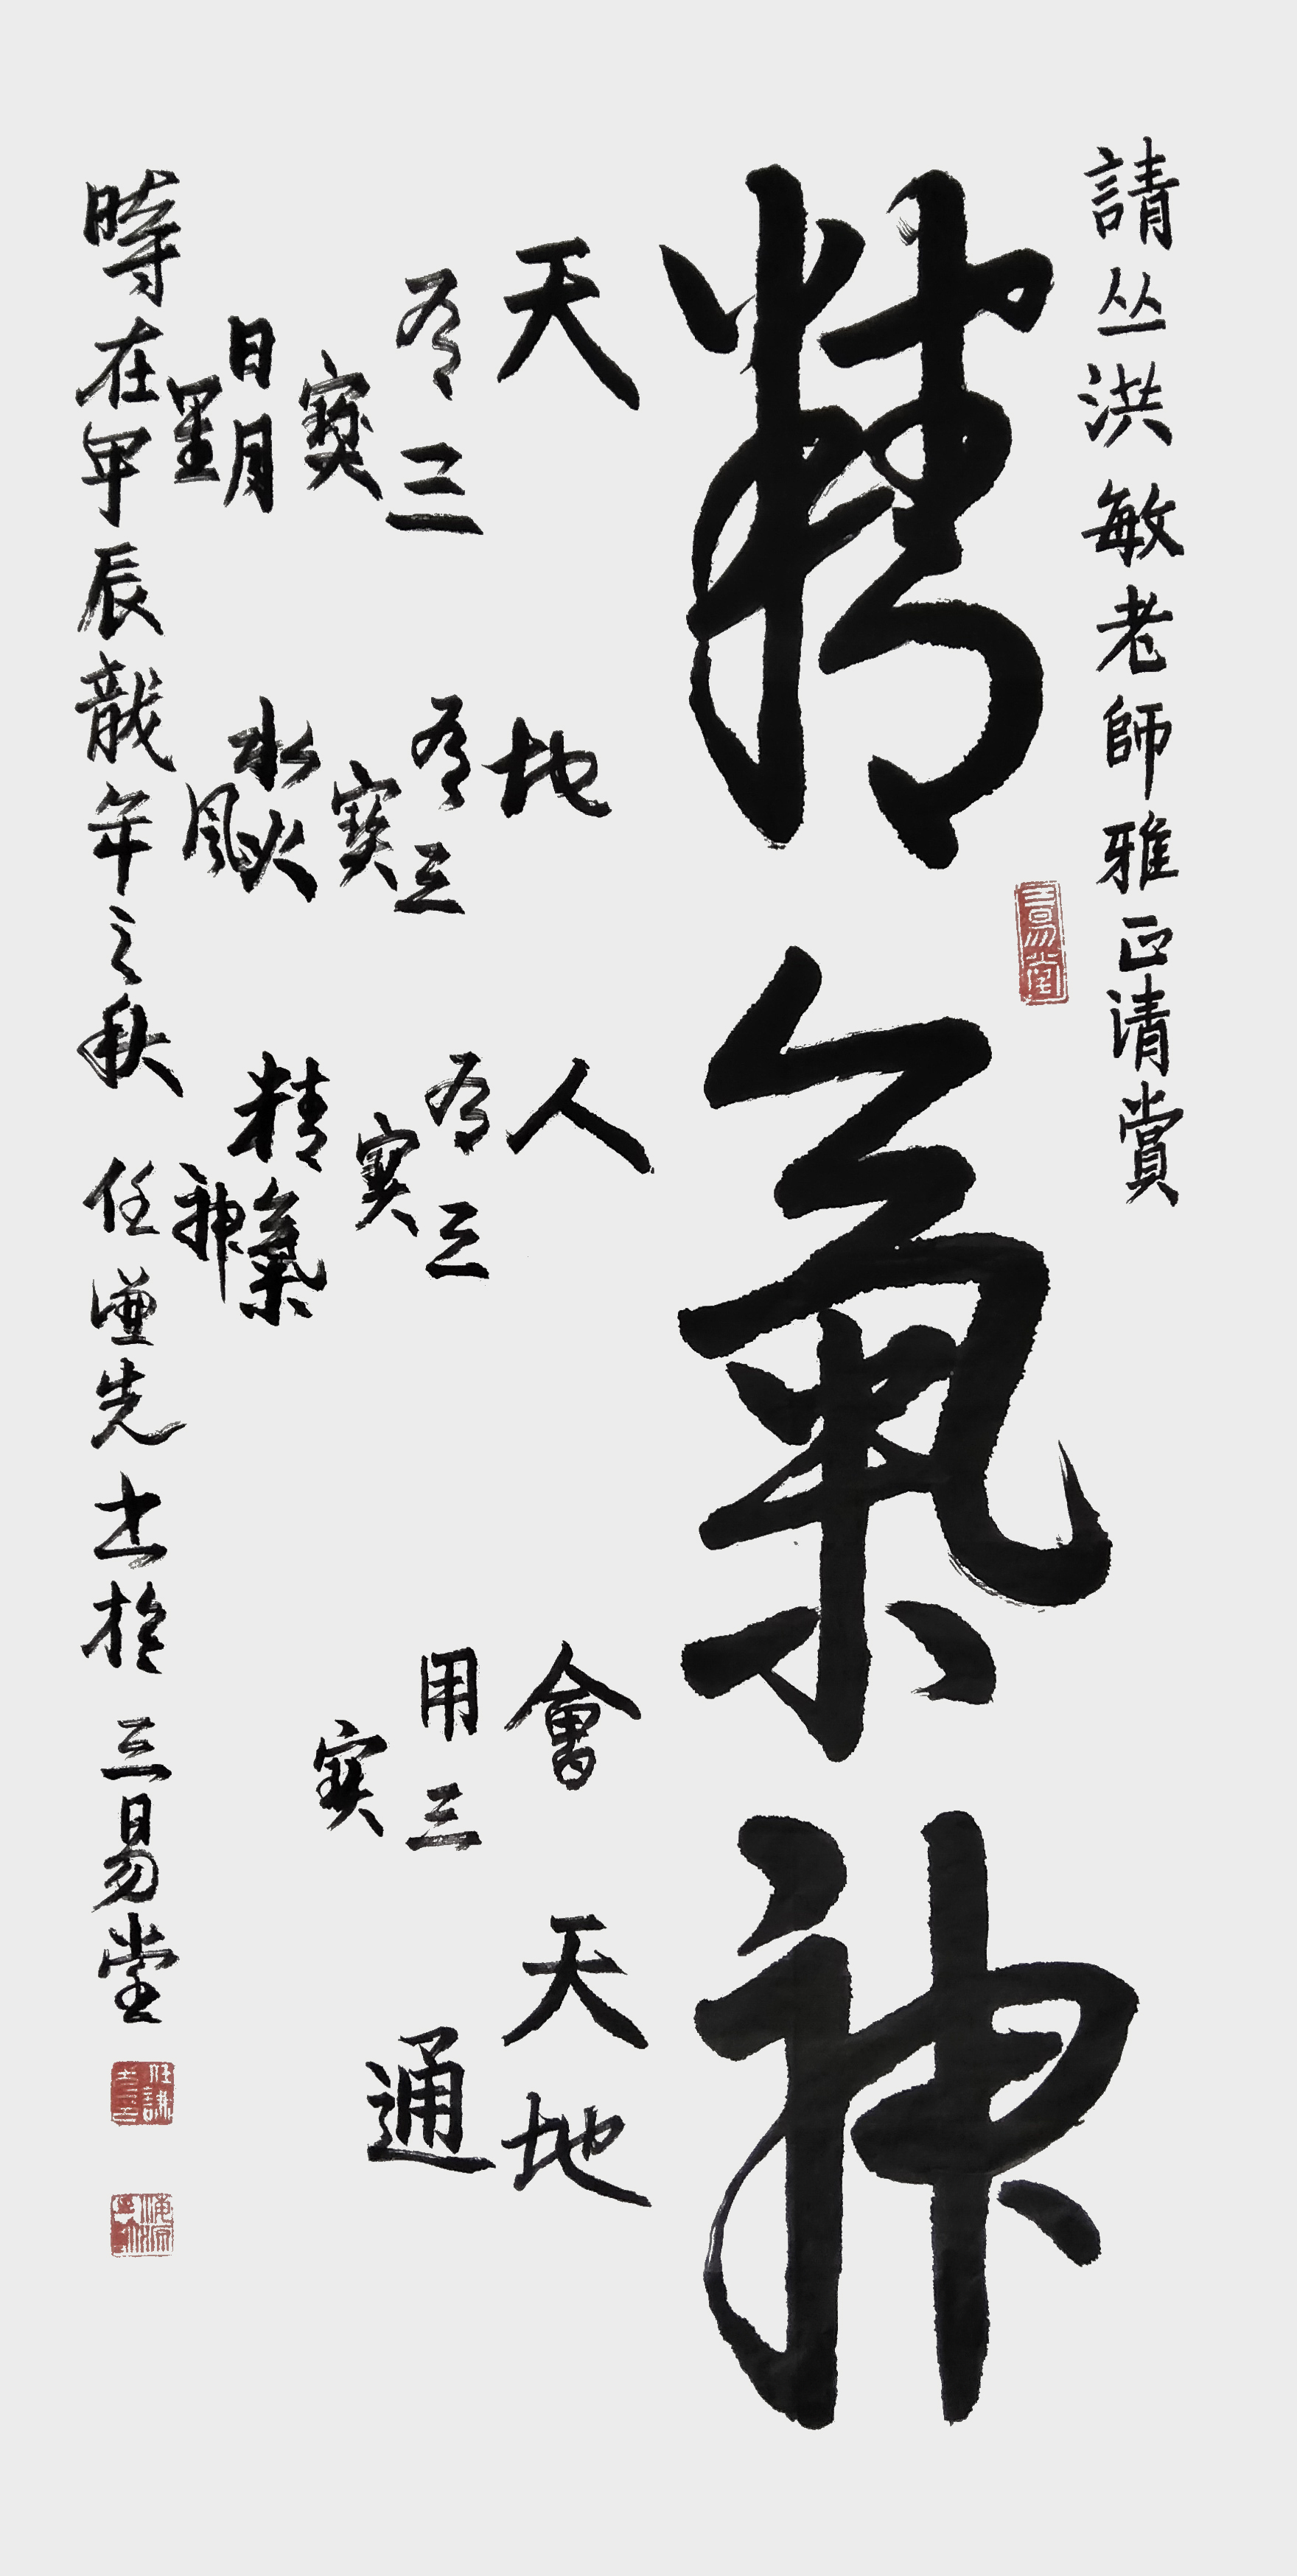 請丛洪敏老師雅正清賞
精氣神
天有三寶日月星
地有三寶水火風
人有三寶精氣神
會用三寶天地通
時在甲辰龍年之秋 任謙先書於三易堂
三易堂